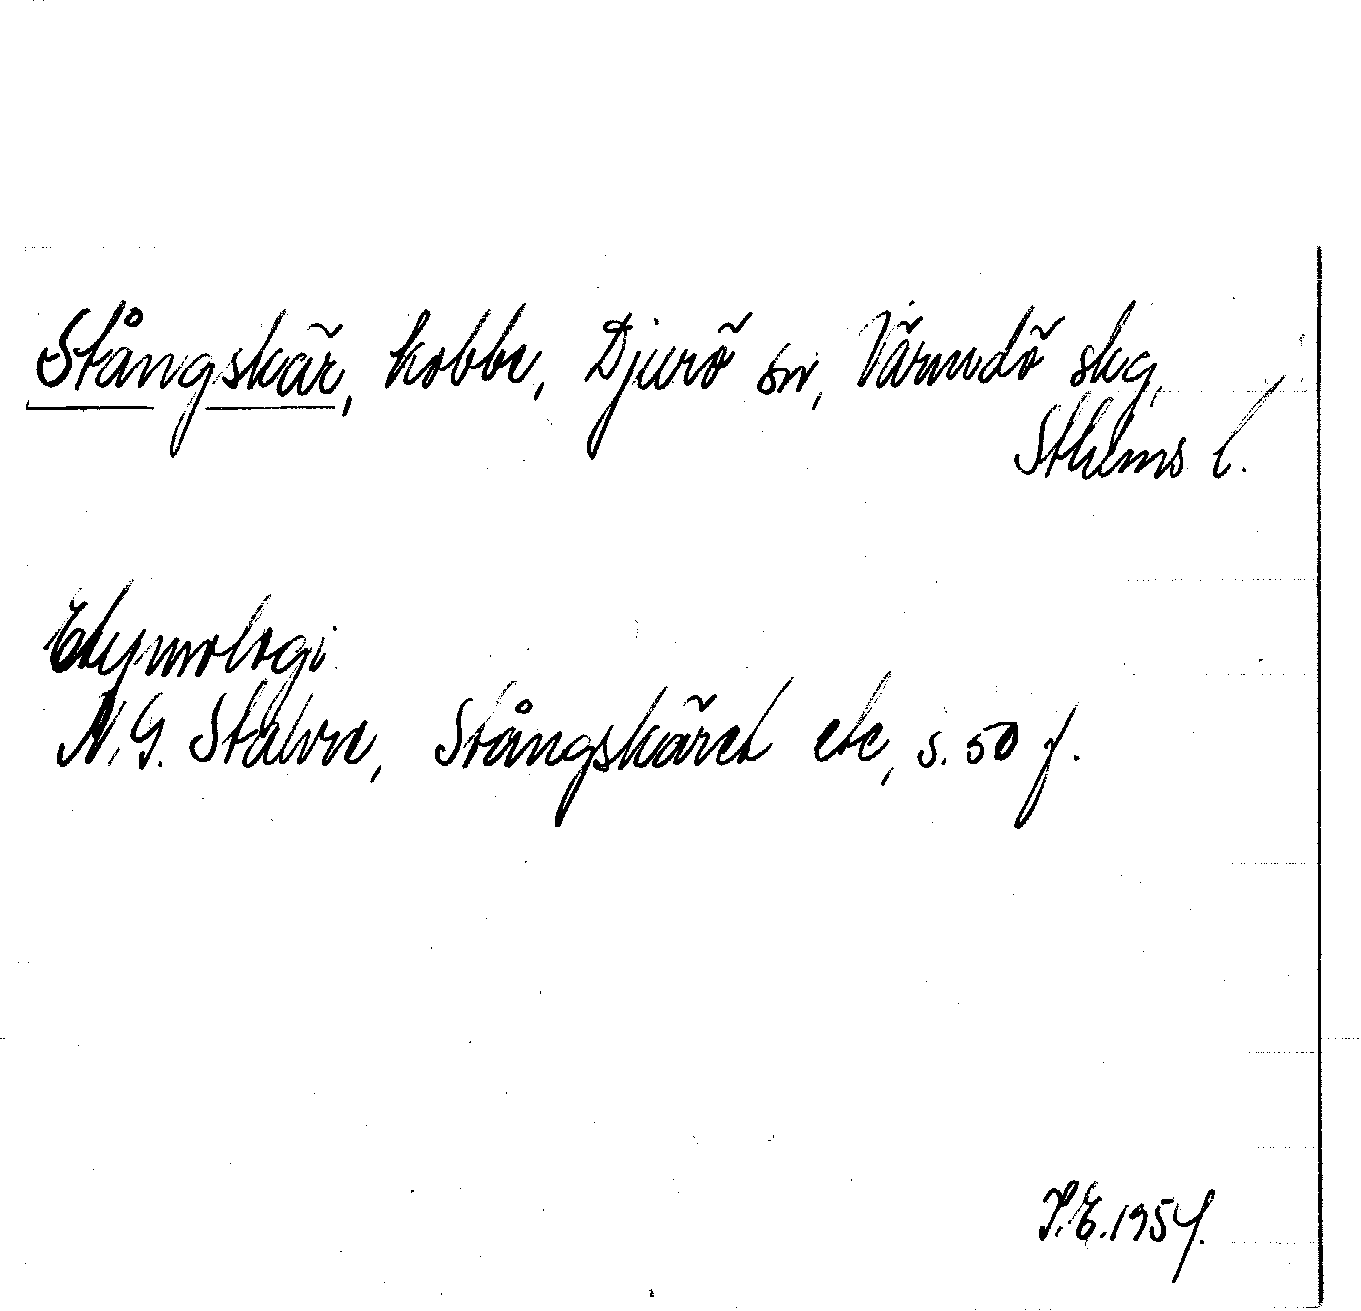 Stångskär, kobbe, Djurö sn, Värmdö skg,
Sthlms l.
Etymologi
N.G. Stalvre, Stångskäret etc, s. 50 f.
P.E. 1954.